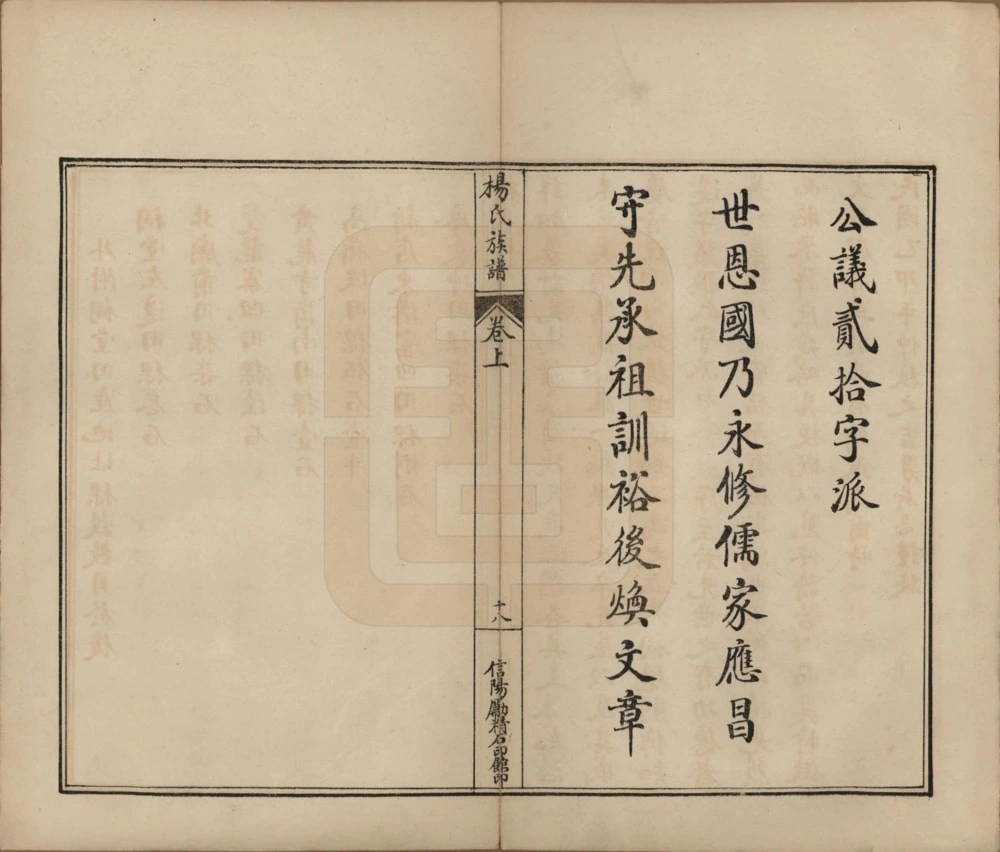 公議貳拾字派
世恩國乃永修儒家應昌
守先承祖訓裕後煥文章
楊氏族譜
卷上
十八
信陽勵精石印館印